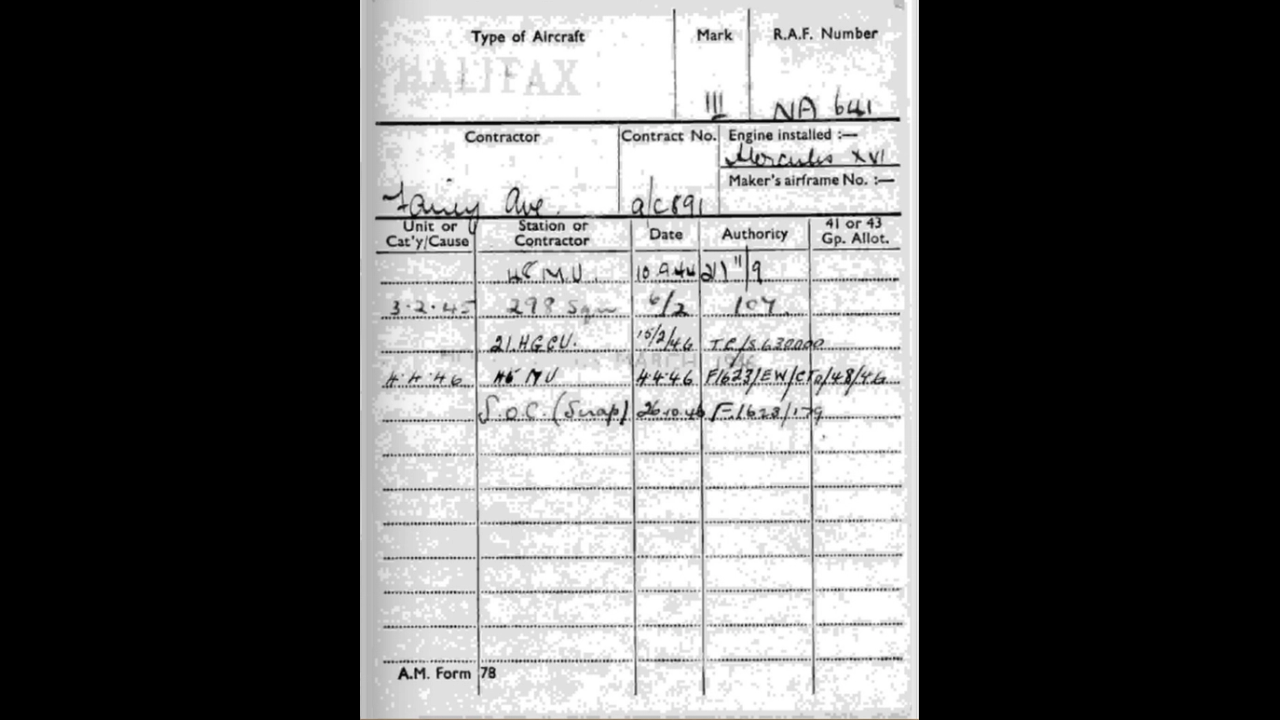 Type of Aircraft Mark R.A.F. Number
HALIFAX III NA 641
Contractor Contract No. Engine installed :—
Hercules XVI
Maker's airframe No. :—
Fairey Ave. a/c891
Unit or Cat'y/Cause Station or Contractor Date Authority 41 or 43 Gp. Allot.
48 M.U. 10.9.44 11/9
3.2.45 298 Sqn 6/2 107
21.HGCU. 15/2/46
4.4.46 45 MU 4.4.46 F/623/EW/CTO/48/46
S.O.C. (Scrap) 26.10.46 F.1623/179
A.M. Form 78